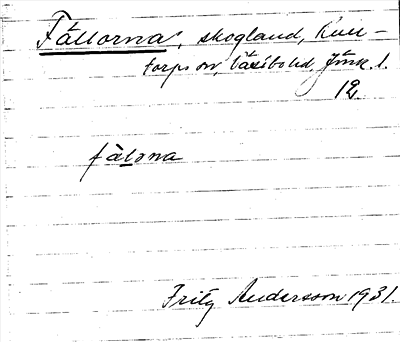 Fållorna, skogland, Kull-
torps sn, Västbo hd, Jönk. l.
12.
fàlo̲na
Fritz Andersson 1931.